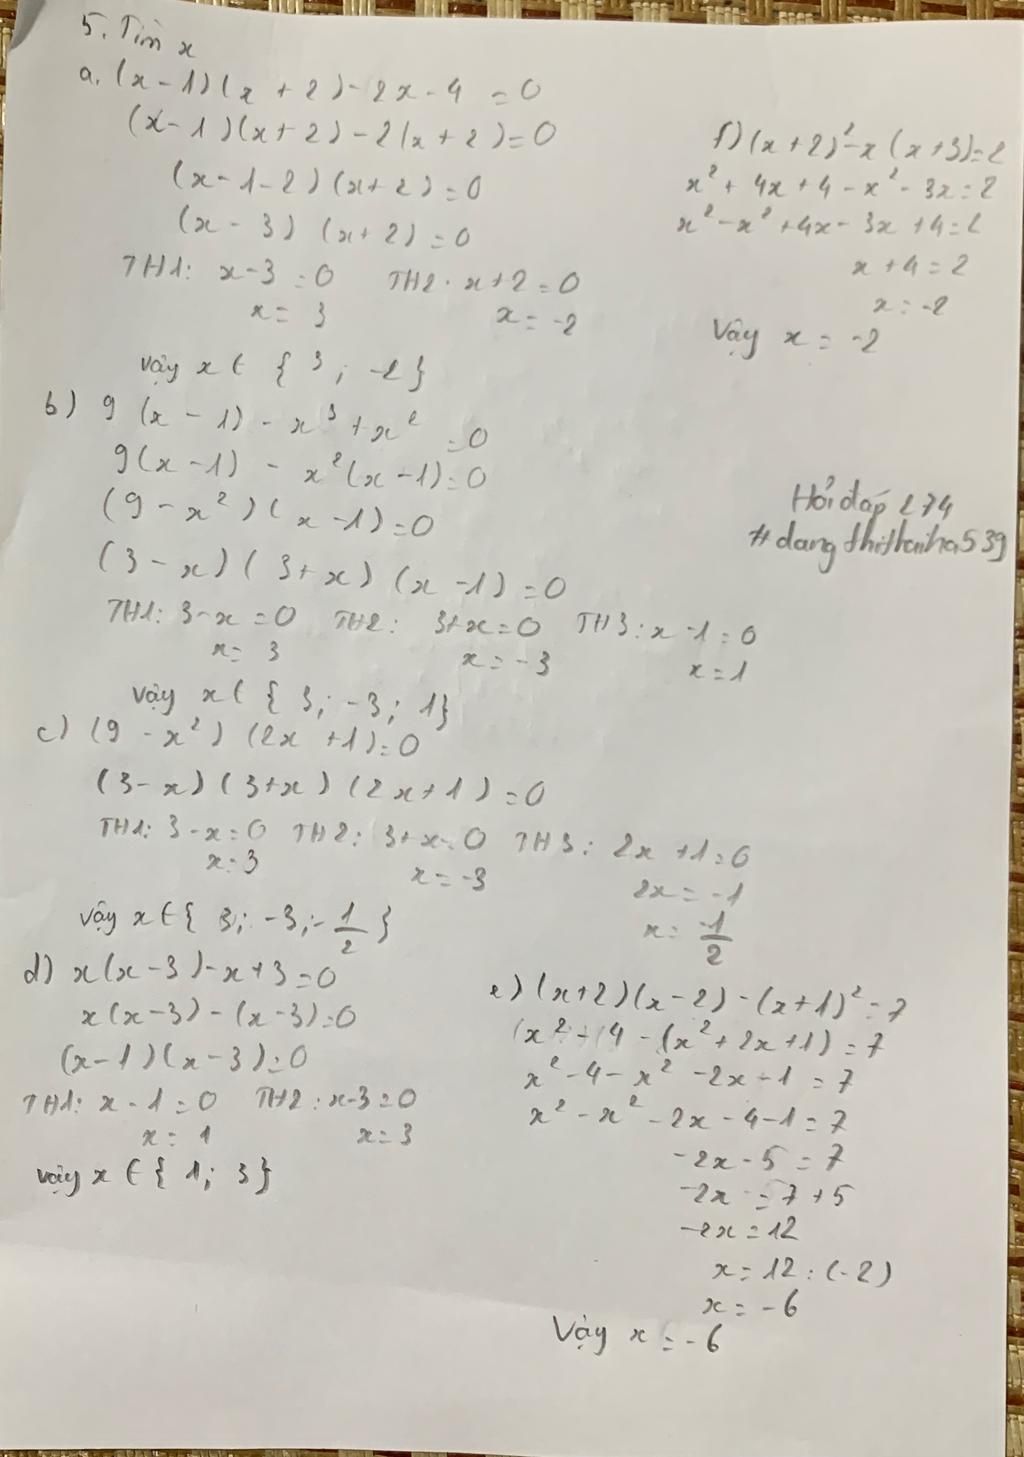 5. Tìm x
a. (x - 1)(x + 2) - 2x - 4 = 0
(x - 1)(x + 2) - 2(x + 2) = 0
(x - 1 - 2)(x + 2) = 0
(x - 3)(x + 2) = 0
TH1: x - 3 = 0 TH2: x + 2 = 0
x = 3 x = -2
Vậy x ∈ {3; -2}
b) 9(x - 1) - x³ + x² = 0
9(x - 1) - x²(x - 1) = 0
(9 - x²)(x - 1) = 0
(3 - x)(3 + x)(x - 1) = 0
TH1: 3 - x = 0 TH2: 3 + x = 0 TH3: x - 1 = 0
x = 3 x = -3 x = 1
Vậy x ∈ {3; -3; 1}
c) (9 - x²)(2x + 1) = 0
(3 - x)(3 + x)(2x + 1) = 0
TH1: 3 - x = 0 TH2: 3 + x = 0 TH3: 2x + 1 = 0
x = 3 x = -3 2x = -1
x = -1/2
Vậy x ∈ {3; -3; -1/2}
d) x(x - 3) - x + 3 = 0
x(x - 3) - (x - 3) = 0
(x - 1)(x - 3) = 0
TH1: x - 1 = 0 TH2: x - 3 = 0
x = 1 x = 3
Vậy x ∈ {1; 3}
e) (x + 2)(x - 2) - (x + 1)² = 7
(x² - 4 - (x² + 2x + 1) = 7
x² - 4 - x² - 2x - 1 = 7
x² - x² - 2x - 4 - 1 = 7
-2x - 5 = 7
-2x = 7 + 5
-2x = 12
x = 12 : (-2)
x = -6
Vậy x = -6
f) (x + 2)² - x(x + 3) = 2
x² + 4x + 4 - x² - 3x = 2
x² - x² + 4x - 3x + 4 = 2
x + 4 = 2
x = -2
Vậy x = -2
Hỏi đáp 274
#dangthithaiha539